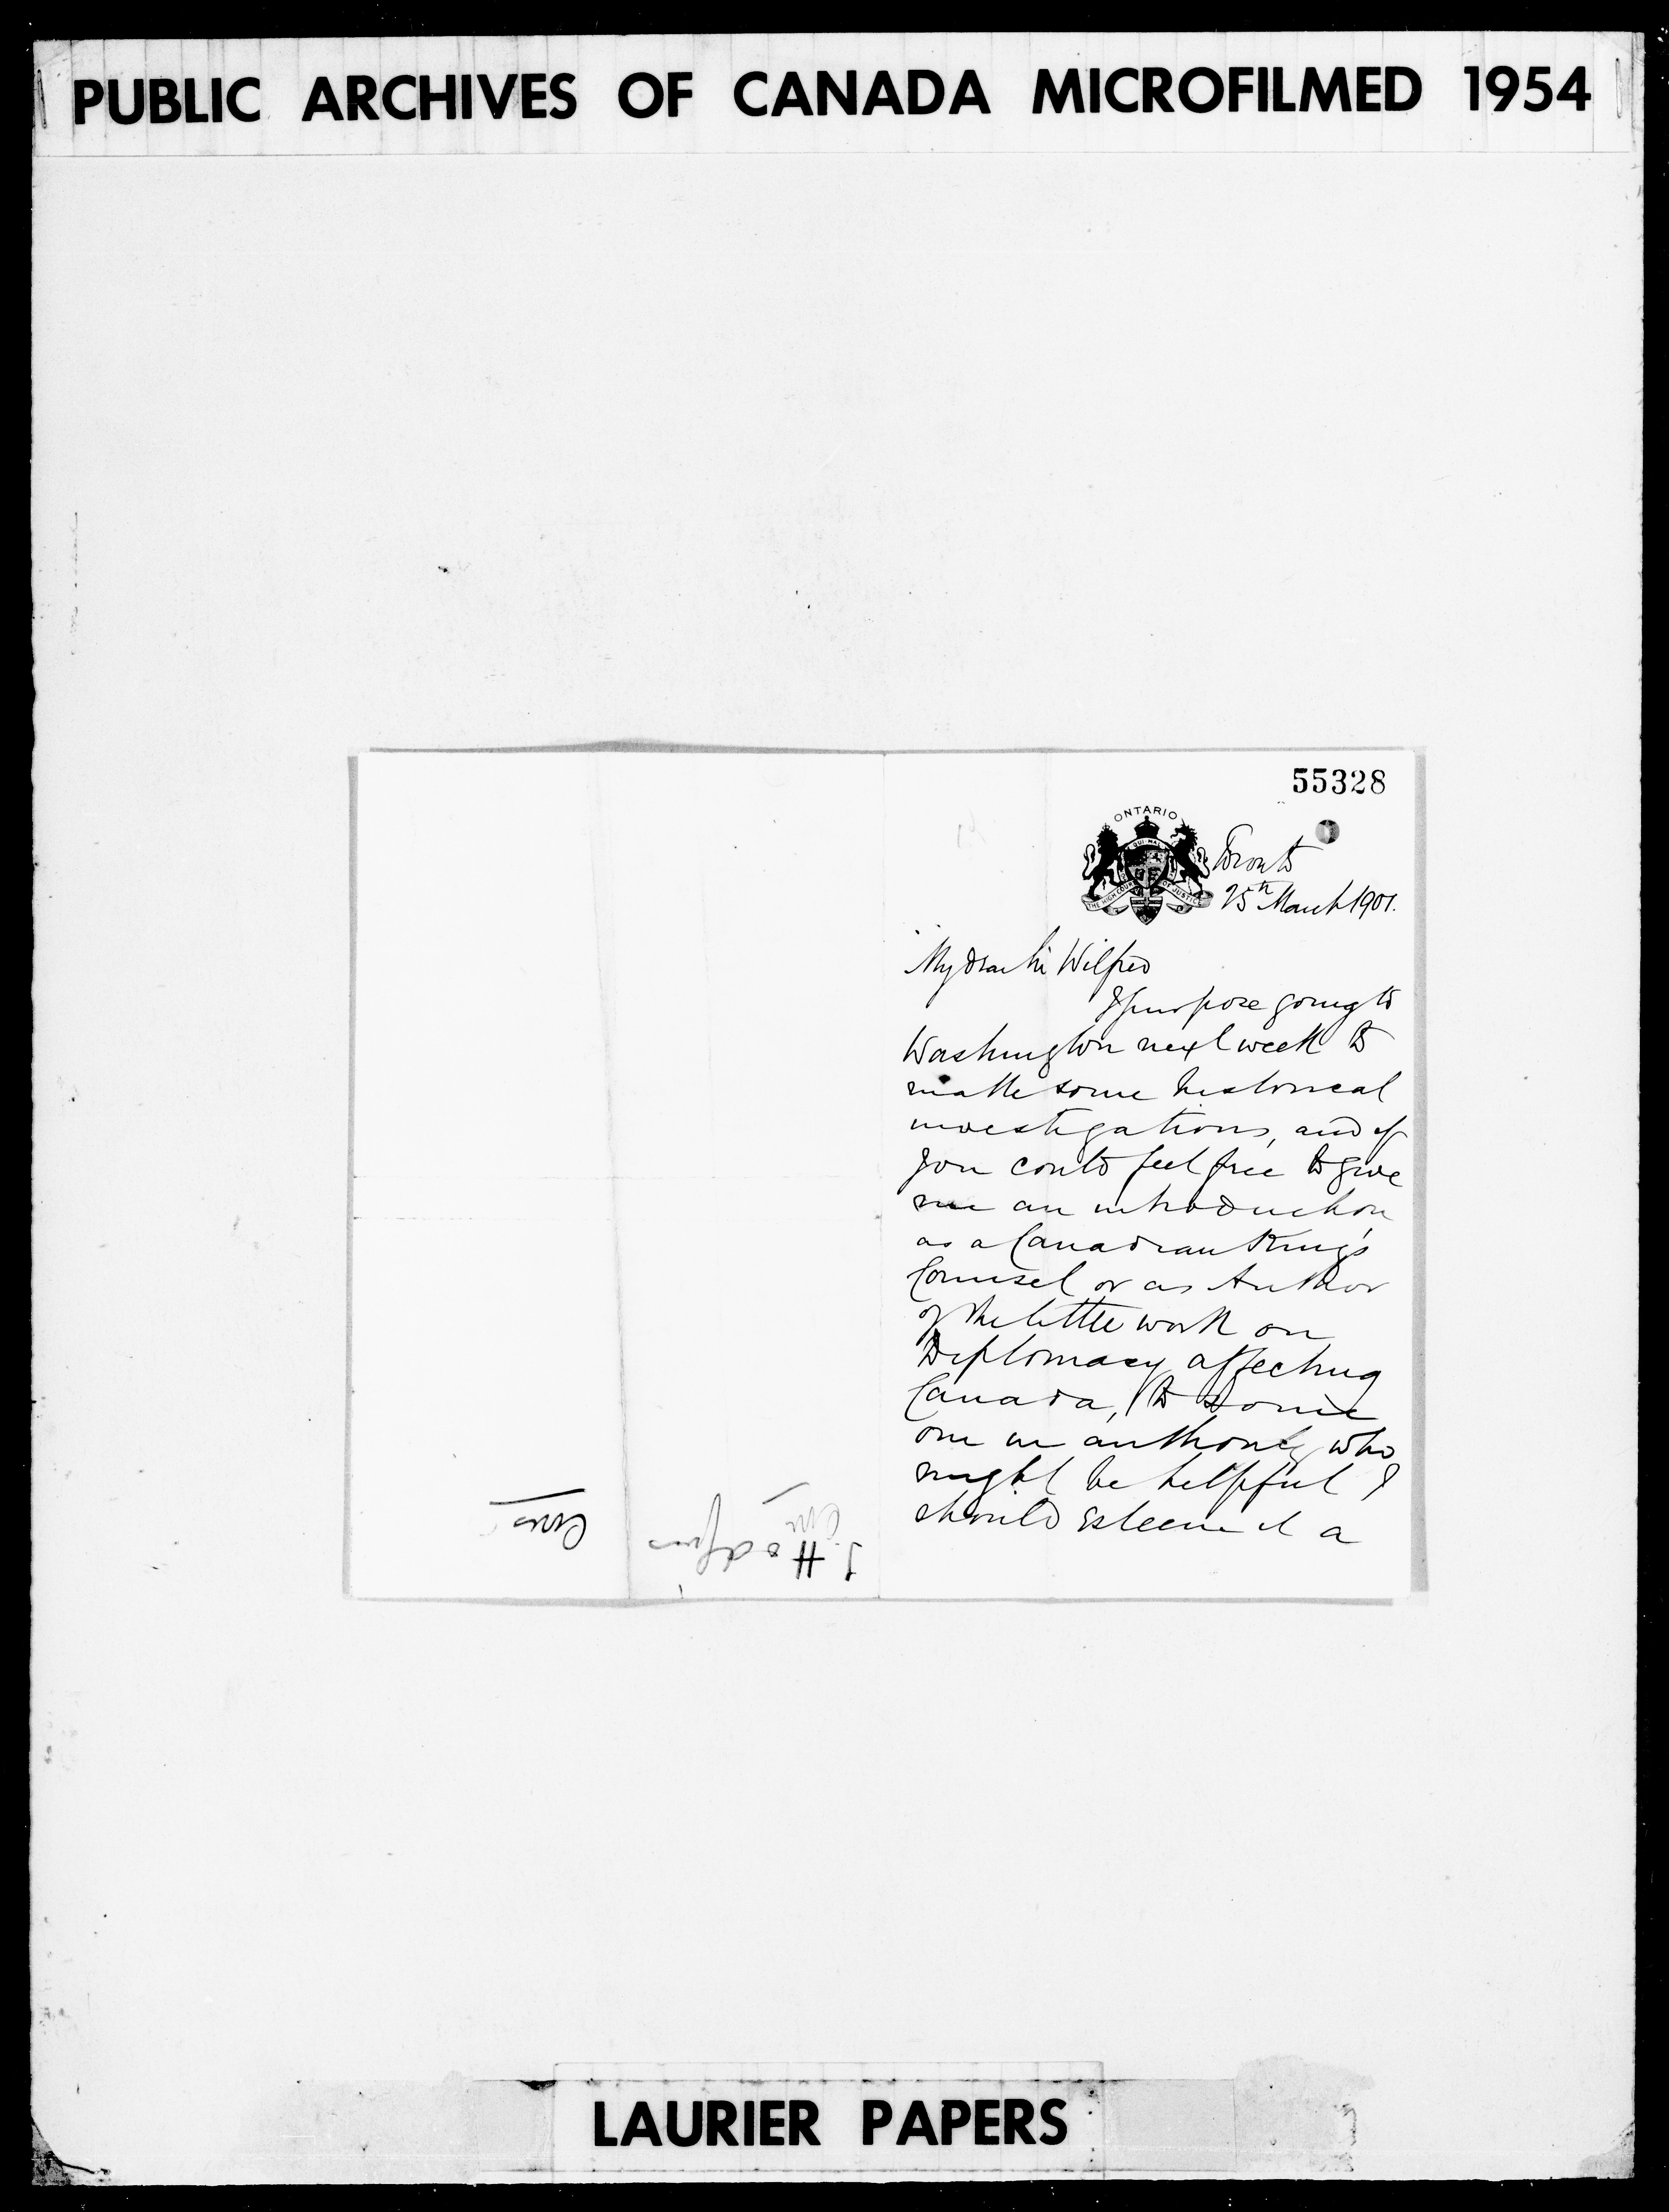 PUBLIC ARCHIVES OF CANADA MICROFILMED 1954
55328
ONTARIO
THE HIGH COURT OF JUSTICE
Toronto
25th March 1901.
My dear Sir Wilfred
I purpose going to
Washington next week to
make some historical
investigations, and if
you could feel free to give
me an introduction
as a Canadian King's
Counsel or as Author
of the little work on
Diplomacy affecting
Canada, to some
one in authority who
might be helpful I
should esteem it a
J. Hodgins
LAURIER PAPERS